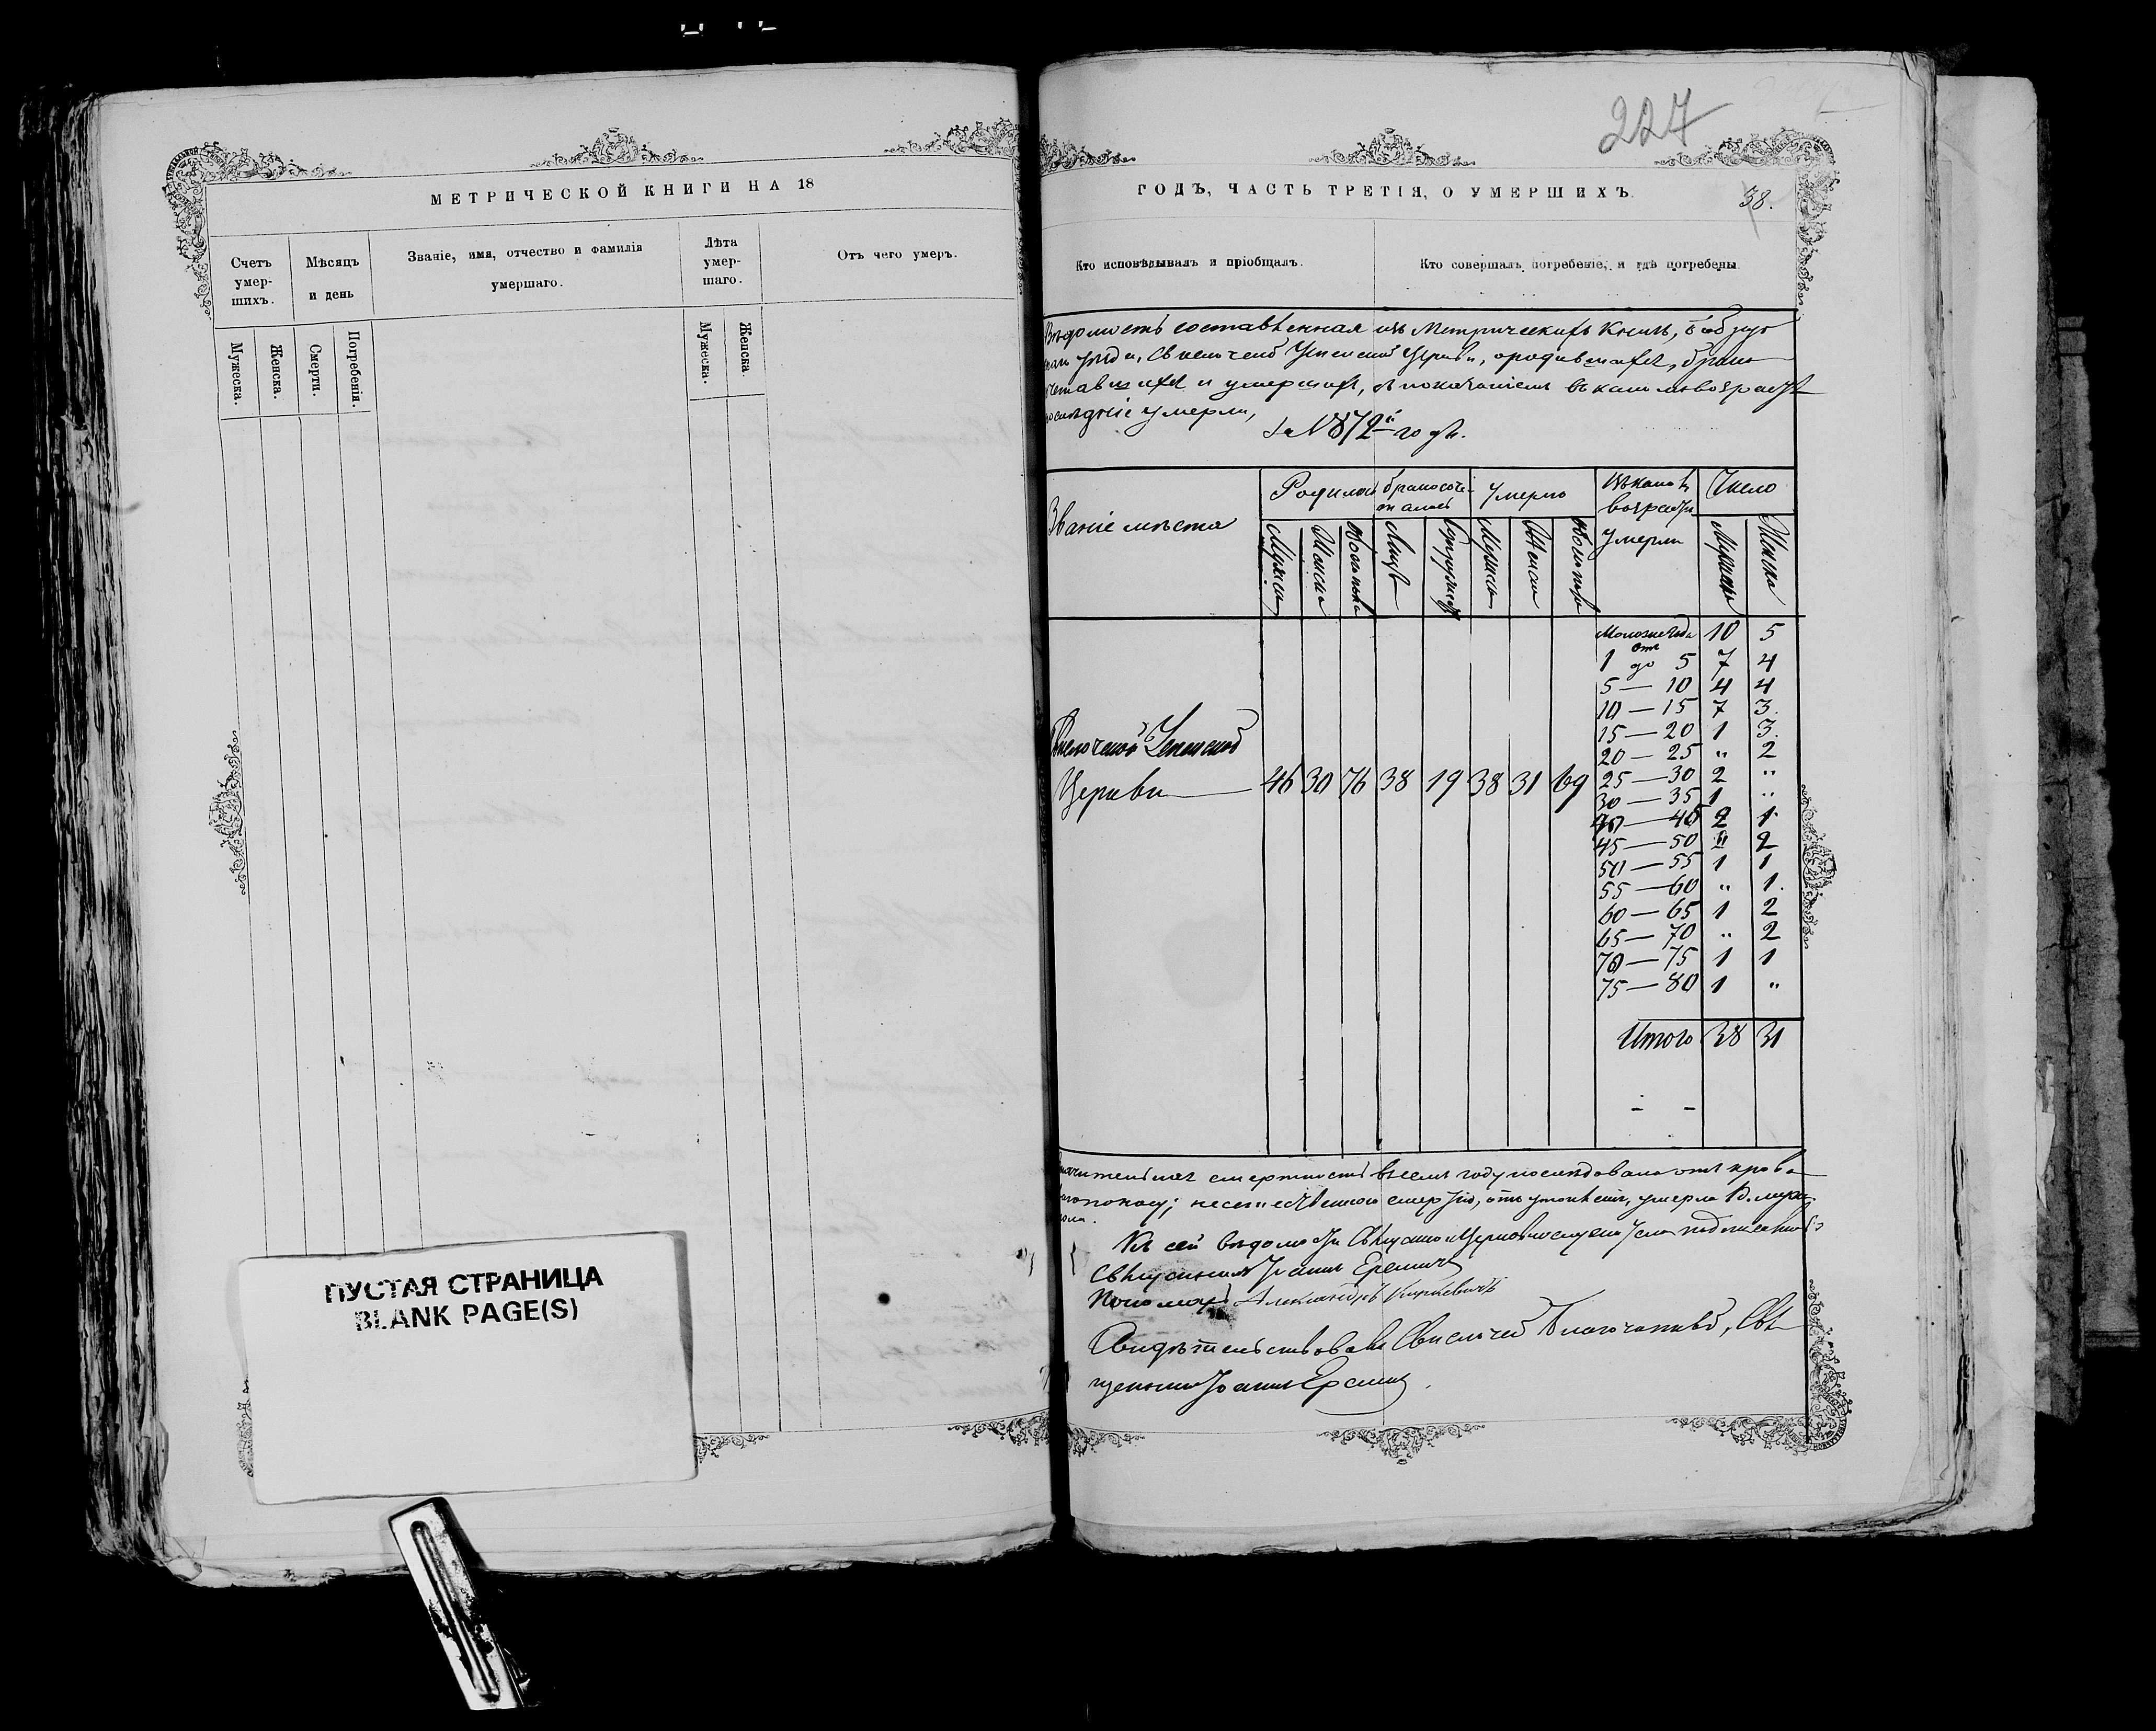 МЕТРИЧЕСКОЙ КНИГИ НА 18
Счетъ умер-шихъ.
Мѣсяцъ и день
Званіе, имя, отчество и фамилія умершаго.
Лѣта умер-шаго.
Отъ чего умеръ.
Мужеска.
Женска.
Смерти.
Погребенія.
Мужеска.
Женска.
ПУСТАЯ СТРАНИЦА
BLANK PAGE(S)
227
ГОДЪ, ЧАСТЬ ТРЕТІЯ, О УМЕРШИХЪ.
38.
Кто исповѣдывалъ и пріобщалъ.
Кто совершалъ погребеніе, и гдѣ погребены
Вѣдомость составленная изъ Метрическихъ Книгъ,
Успенской Церкви, о родившихся, брако
и умершихъ, съ показаніемъ въ какомъ возрастѣ
послѣдніе умерли,
за 1872й годъ.
Званіе мѣста
Родилось
бракосоче-талось
Умерло
Въ какомъ возрастѣ умерли
Число
Мужеска
Женска
Обоего пола
Лицъ
Супружествъ
Мужеска
Женска
Обоего пола
Мужеска
Женска
Свислочской Успенской
Церкви 46 30 76 38 19 38 31 69
10 5
отъ
1 до 5 7 4
5 — 10 4 4
10 — 15 7 3.
15 — 20 1 3.
20 — 25 " 2
25 — 30 2 "
30 — 35 1 "
40 — 45 2 1
45 — 50 " 2
50 — 55 1 1
55 — 60 " 1.
60 — 65 1 2
65 — 70 " 2
70 — 75 1 1
75 — 80 1 "
Итого 38 31
смертность въ семъ году послѣдовала отъ крова
поносу; неестественною смертію, отъ умерло
Къ сей вѣдомости Священно и Церковнослужители подписались
Священникъ Іоаннъ Еремичъ
Пономарь Александръ
Свидѣтельствовалъ Благочинный, Свя
щенникъ Іоаннъ Еремичъ.